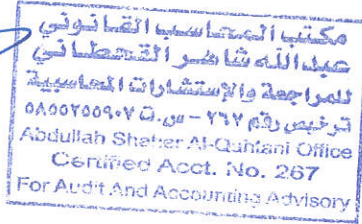 مكتب المحاسب القانوني
عبدالله شاهر القحطاني
للمراجعة والإستشارات المحاسبية
ترخيص رقم ٢٦٧ - س.ت ٥٨٥٥٧٥٥٩٠٧
Abdullah Shaher Al-Qahtani Office
Certified Acct. No. 267
For Audit And Accounting Advisory